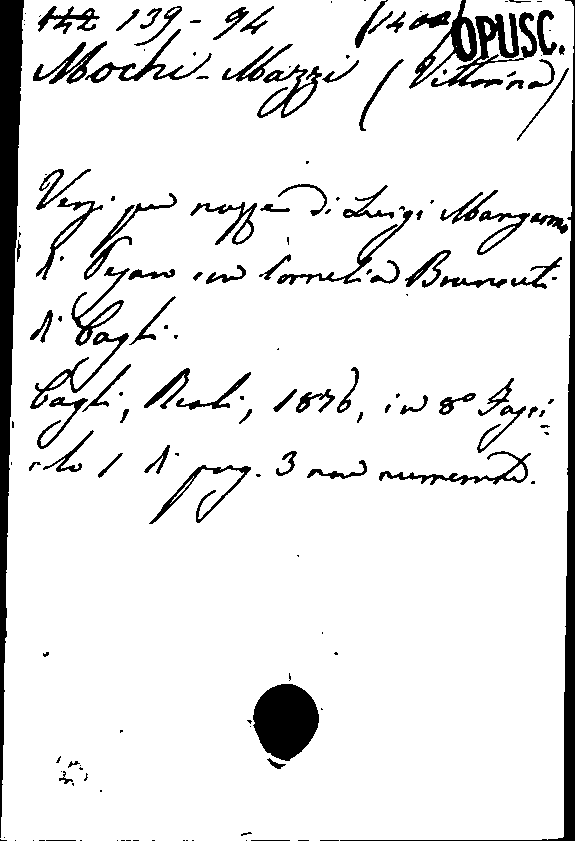 142 139-94 (1402) OPUSC.
Mochi-Mazzi (Vittorina)
Versi per nozze di Luigi Mangaroni
di Pesaro con Cornelia Brancuti
di Cagli.
Cagli, Balloni, 1876, in 8° Fasci-
colo 1 di pag. 3 non numerate.